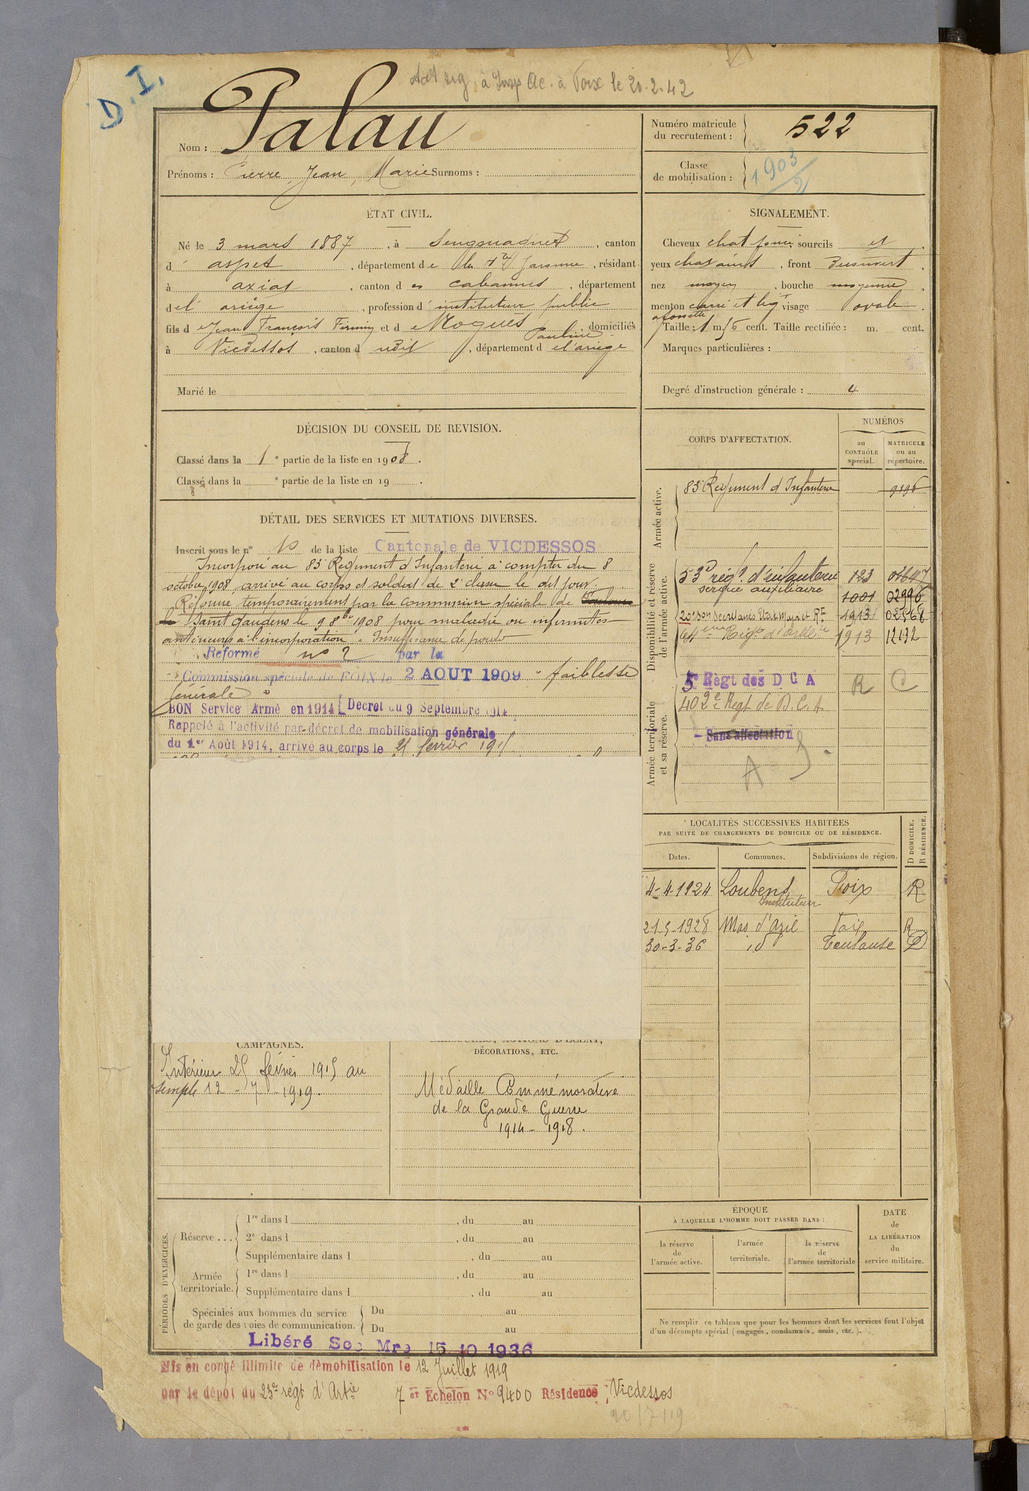 D.I.
à Insp Ac. à Foix le 20.2.42
Nom : Palau
Prénoms : Pierre Jean Marie Surnoms :
Numéro matricule du recrutement : 522
Classe de mobilisation : 1903/2
ÉTAT CIVIL.
Né le 3 mars 1887, à Sengouagnet, canton
d' aspet, département de la Hte Garonne, résidant
à axiat, canton d es cabannes, département
de l' ariège, profession d' instituteur public
fils d e Jean François Firmin et d e Rogues Pauline domiciliés
à Vicdessos, canton d udit, département d e l'ariège
Marié le
SIGNALEMENT.
Cheveux chat foncé sourcils et
yeux chatains, front
nez moyen, bouche moyenne
menton carré et visage ovale
Taille : 1 m. cent. Taille rectifiée : m. cent.
Marques particulières :
Degré d'instruction générale : 4
DÉCISION DU CONSEIL DE REVISION.
Classé dans la 1e partie de la liste en 1908.
Classé dans la e partie de la liste en 19 .
DÉTAIL DES SERVICES ET MUTATIONS DIVERSES.
Inscrit sous le n° 10 de la liste Cantonale de VICDESSOS
Incorporé au 83e Régiment d'Infanterie à compter du 8
octobre 1908, arrivé au corps et soldat de 2e classe le dit jour.
Réformé temporairement par la commission spéciale de Toulouse
de Saint Gaudens le 9 8bre 1908 pour maladie ou infirmités
antérieures à l'incorporation. Insuffisance de poids
Réformé n° 2 par la
Commission spéciale de FOIX le 2 AOUT 1909 - faiblesse
générale "
BON Service Armé en 1914 [Décret du 9 Septembre 1914
Rappelé à l'activité par décret de mobilisation générale
du 1er Août 1914, arrivé au corps le 25 février 1915
CORPS D'AFFECTATION.
NUMÉROS
au CONTRÔLE spécial.
MATRICULE ou au répertoire.
Armée active.
83e Régiment d'Infanterie
Disponibilité et réserve de l'armée active.
53e régt d'infanterie 123
service auxiliaire 1001 02996
1913
1913 12192
Armée territoriale et sa réserve.
5e Régt des D C A R C
402e Régt de D.C.A.
- Sans affectation
LOCALITÉS SUCCESSIVES HABITÉES
PAR SUITE DE CHANGEMENTS DE DOMICILE OU DE RÉSIDENCE.
Dates. Communes. Subdivisions de région. D DOMICILE. R RÉSIDENCE.
4-4-1924 Loubens Foix R
Instituteur
21-5-1928 Mas d'Azil Foix R
30-3-36 id Toulouse D
CAMPAGNES.
Intérieur 25 février 1915 au
simple 12 - 7 - 1919.
DÉCORATIONS, ETC.
Médaille Commémorative
de la Grande Guerre
1914 - 1918.
PÉRIODES D'EXERCICES.
Réserve ...
1re dans l , du au
2e dans l , du au
Supplémentaire dans l , du au
Armée territoriale.
1re dans l , du au
Supplémentaire dans l , du au
Spéciales aux hommes du service de garde des voies de communication.
Du au
Du au
ÉPOQUE
A LAQUELLE L'HOMME DOIT PASSER DANS :
la réserve de l'armée active.
l'armée territoriale.
la réserve de l'armée territoriale
DATE de LA LIBÉRATION du service militaire.
Ne remplir ce tableau que pour les hommes dont les services font l'objet
d'un décompte spécial (engagés, condamnés, omis, etc.).
Libéré Sce Mre 15 10 1936
Mis en congé illimité de démobilisation le 12 Juillet 1919
par le dépôt du 23e régt d'Artie 7e Echelon N° 9400 Résidence Vicdessos
20/7/19